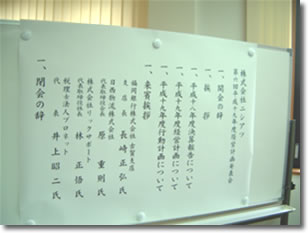 株式会社ニシアツ
第六回平成十九年度経営計画発表会
一、開会の辞
一、挨拶
一、平成十八年度決算報告について
一、平成十九年度経営計画について
一、平成十九年度行動計画について
一、来賓挨拶
福岡銀行株式会社 古賀支店
支店長 長崎 正弘氏
日西物流株式会社
代表取締役社長 原 重則氏
株式会社リックサポート
代表取締役 林 正悟氏
税理士法人プロネット
代表 井上 昭二氏
一、閉会の辞